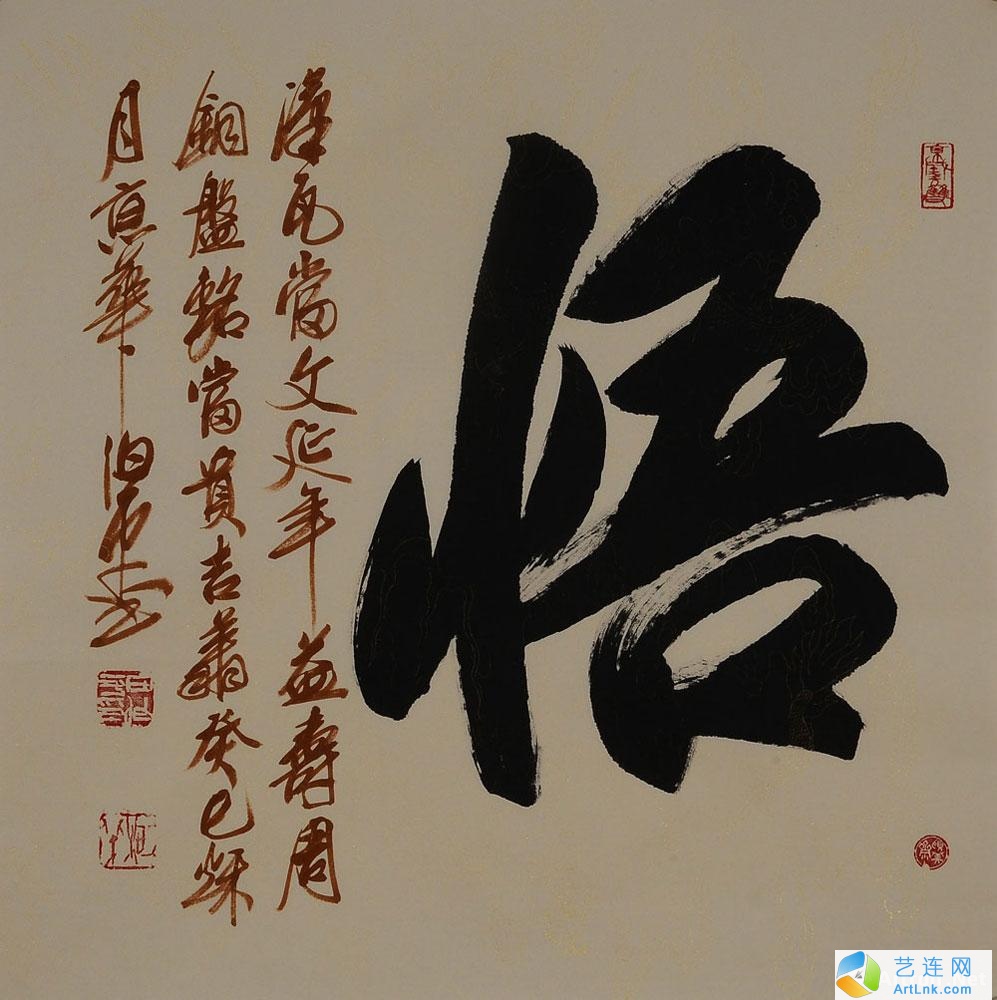 悟
漢瓦當文延年益壽周
銅盤銘富貴吉癸巳秋
月京華書
艺连网
ArtLnk.com